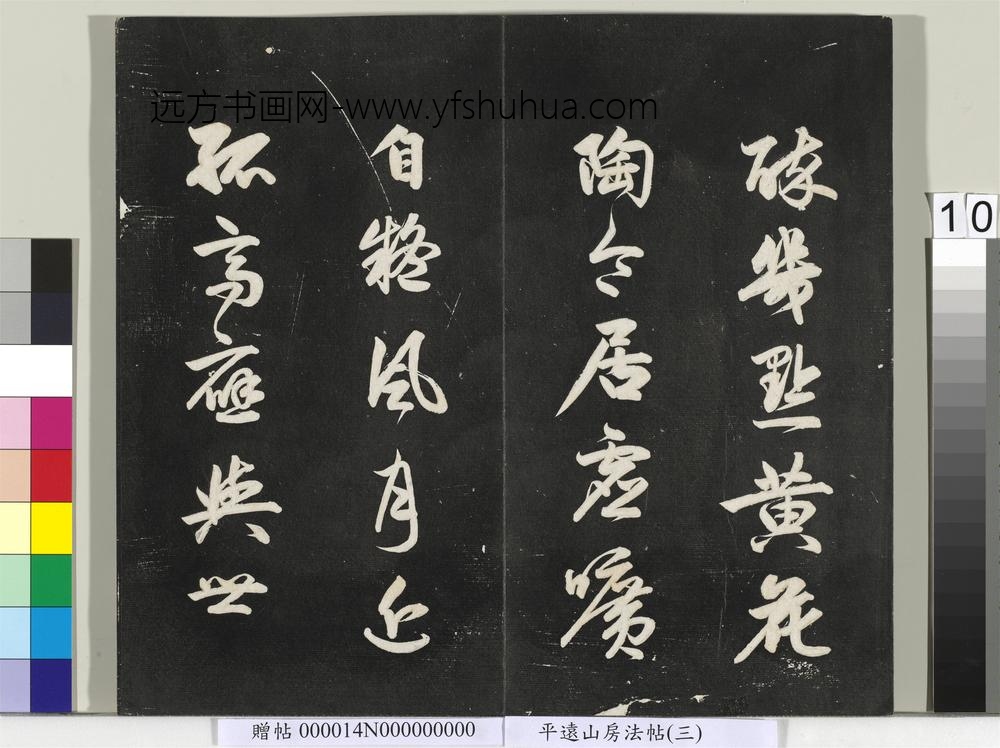 远方书画网-www.yfshuhua.com
醉幾點黃花
陶令居虛曠
自凝風月近
孤高應與世
10
贈帖 000014N000000000
平遠山房法帖(三)